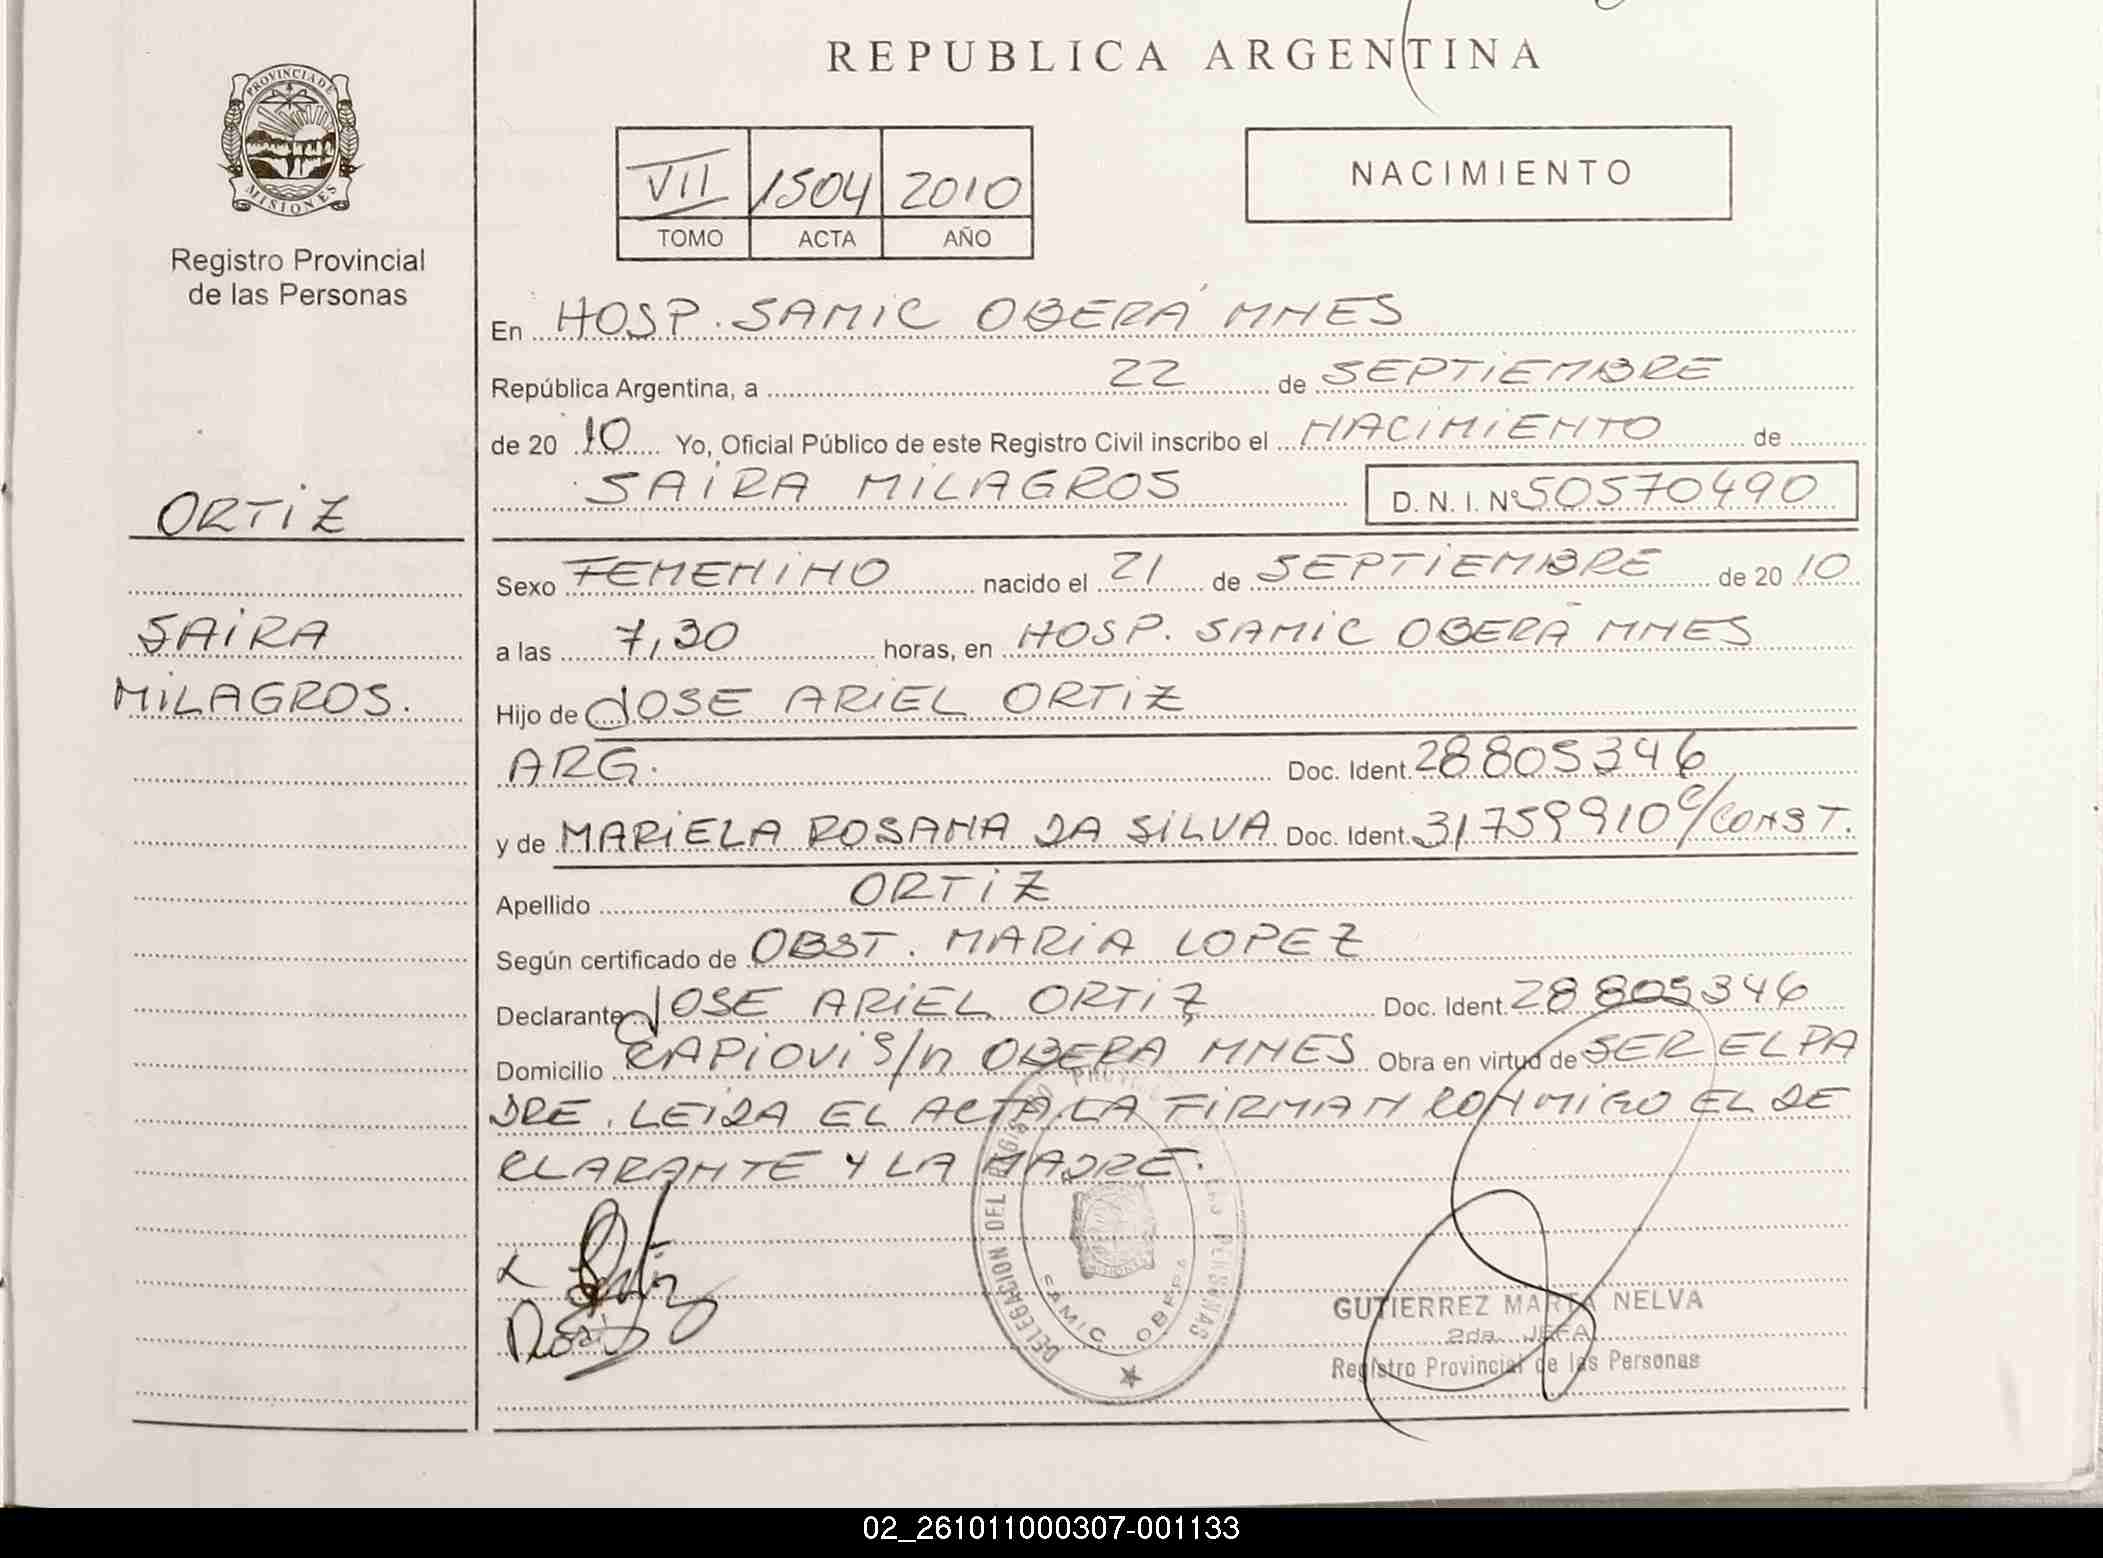 REPUBLICA ARGENTINA
PROVINCIA DE
MISIONES
Registro Provincial
de las Personas
VII 1504 2010
TOMO ACTA AÑO
NACIMIENTO
En HOSP. SAMIC OBERÁ MNES
República Argentina, a 22 de SEPTIEMBRE
de 20 10 Yo, Oficial Público de este Registro Civil inscribo el NACIMIENTO de
SAIRA MILAGROS D. N. I. Nº 50570490
ORTIZ
SAIRA
MILAGROS.
Sexo FEMENINO nacido el 21 de SEPTIEMBRE de 20 10
a las 7,30 horas, en HOSP. SAMIC OBERÁ MNES
Hijo de JOSE ARIEL ORTIZ
ARG. Doc. Ident. 28805346
y de MARIELA ROSANA DA SILVA Doc. Ident. 31759910 C/CONST.
Apellido ORTIZ
Según certificado de OBST. MARIA LOPEZ
Declarante JOSE ARIEL ORTIZ Doc. Ident. 28805346
Domicilio CAPIOVI S/n OBERA MNES Obra en virtud de SER EL PA
DRE. LEIDA EL ACTA LA FIRMAN CONMIGO EL DE
CLARANTE Y LA MADRE.
DELEGACION DEL REGISTRO PROVINCIAL DE LAS PERSONAS
SAMIC OBERA
GUTIERREZ MARTA NELVA
2da. JEFA
Registro Provincial de las Personas
02_261011000307-001133